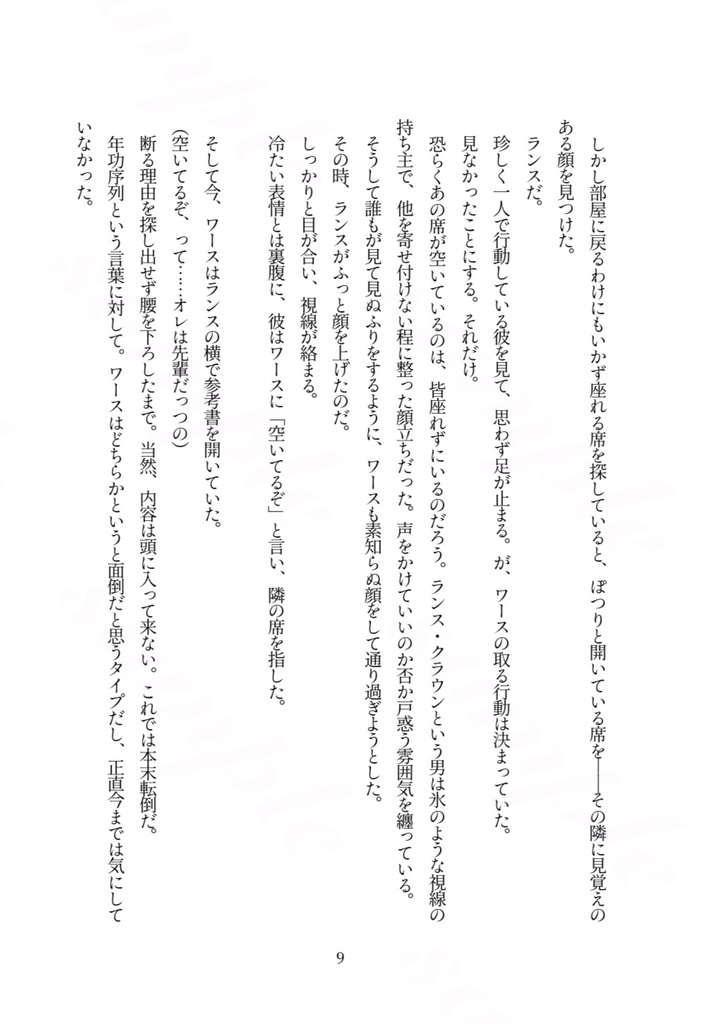 しかし部屋に戻るわけにもいかず座れる席を探していると、ぽつりと開いている席を――その隣に見覚えの
ある顔を見つけた。
ランスだ。
珍しく一人で行動している彼を見て、思わず足が止まる。が、ワースの取る行動は決まっていた。
見なかったことにする。それだけ。
恐らくあの席が空いているのは、皆座れずにいるのだろう。ランス・クラウンという男は氷のような視線の
持ち主で、他を寄せ付けない程に整った顔立ちだった。声をかけていいのか否か戸惑う雰囲気を纏っている。
そうして誰もが見て見ぬふりをするように、ワースも素知らぬ顔をして通り過ぎようとした。
その時、ランスがふっと顔を上げたのだ。
しっかりと目が合い、視線が絡まる。
冷たい表情とは裏腹に、彼はワースに「空いてるぞ」と言い、隣の席を指した。
そして今、ワースはランスの横で参考書を開いていた。
(空いてるぞ、って……オレは先輩だっつの)
断る理由を探し出せず腰を下ろしたまで。当然、内容は頭に入って来ない。これでは本末転倒だ。
年功序列という言葉に対して。ワースはどちらかというと面倒だと思うタイプだし、正直今までは気にして
いなかった。
9
sample